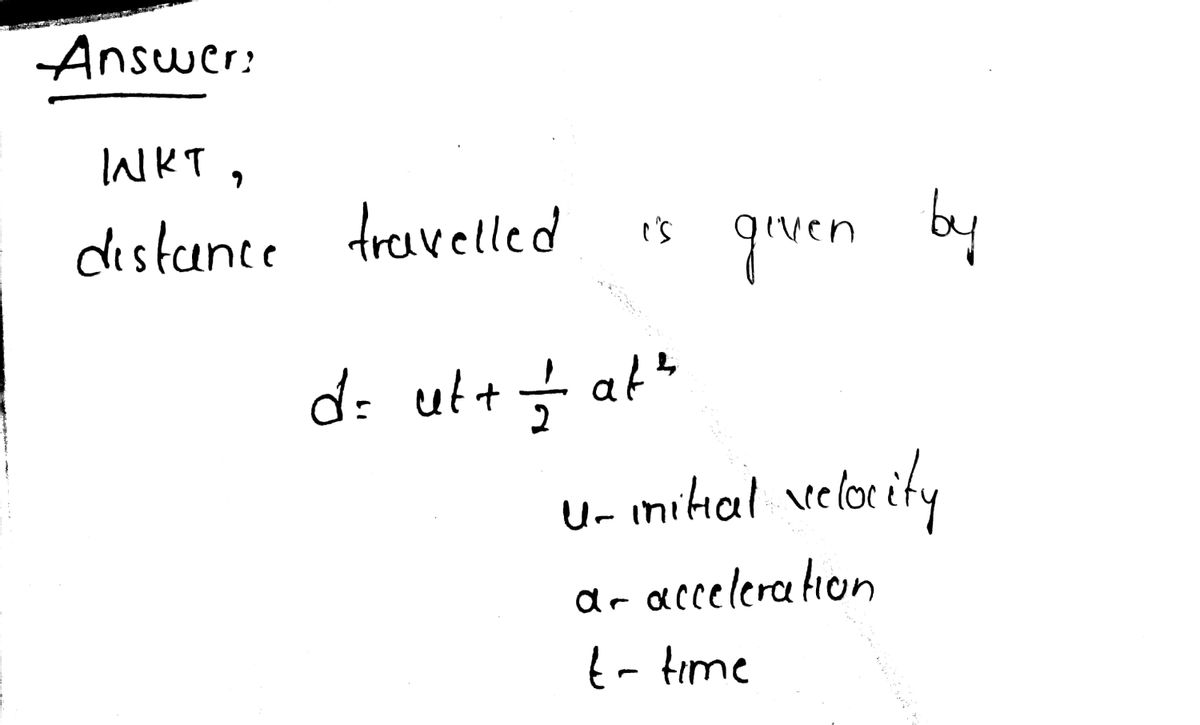 Answer:
WKT,
distance travelled is given by
d = ut + 1/2 at²
u - initial velocity
a - acceleration
t - time